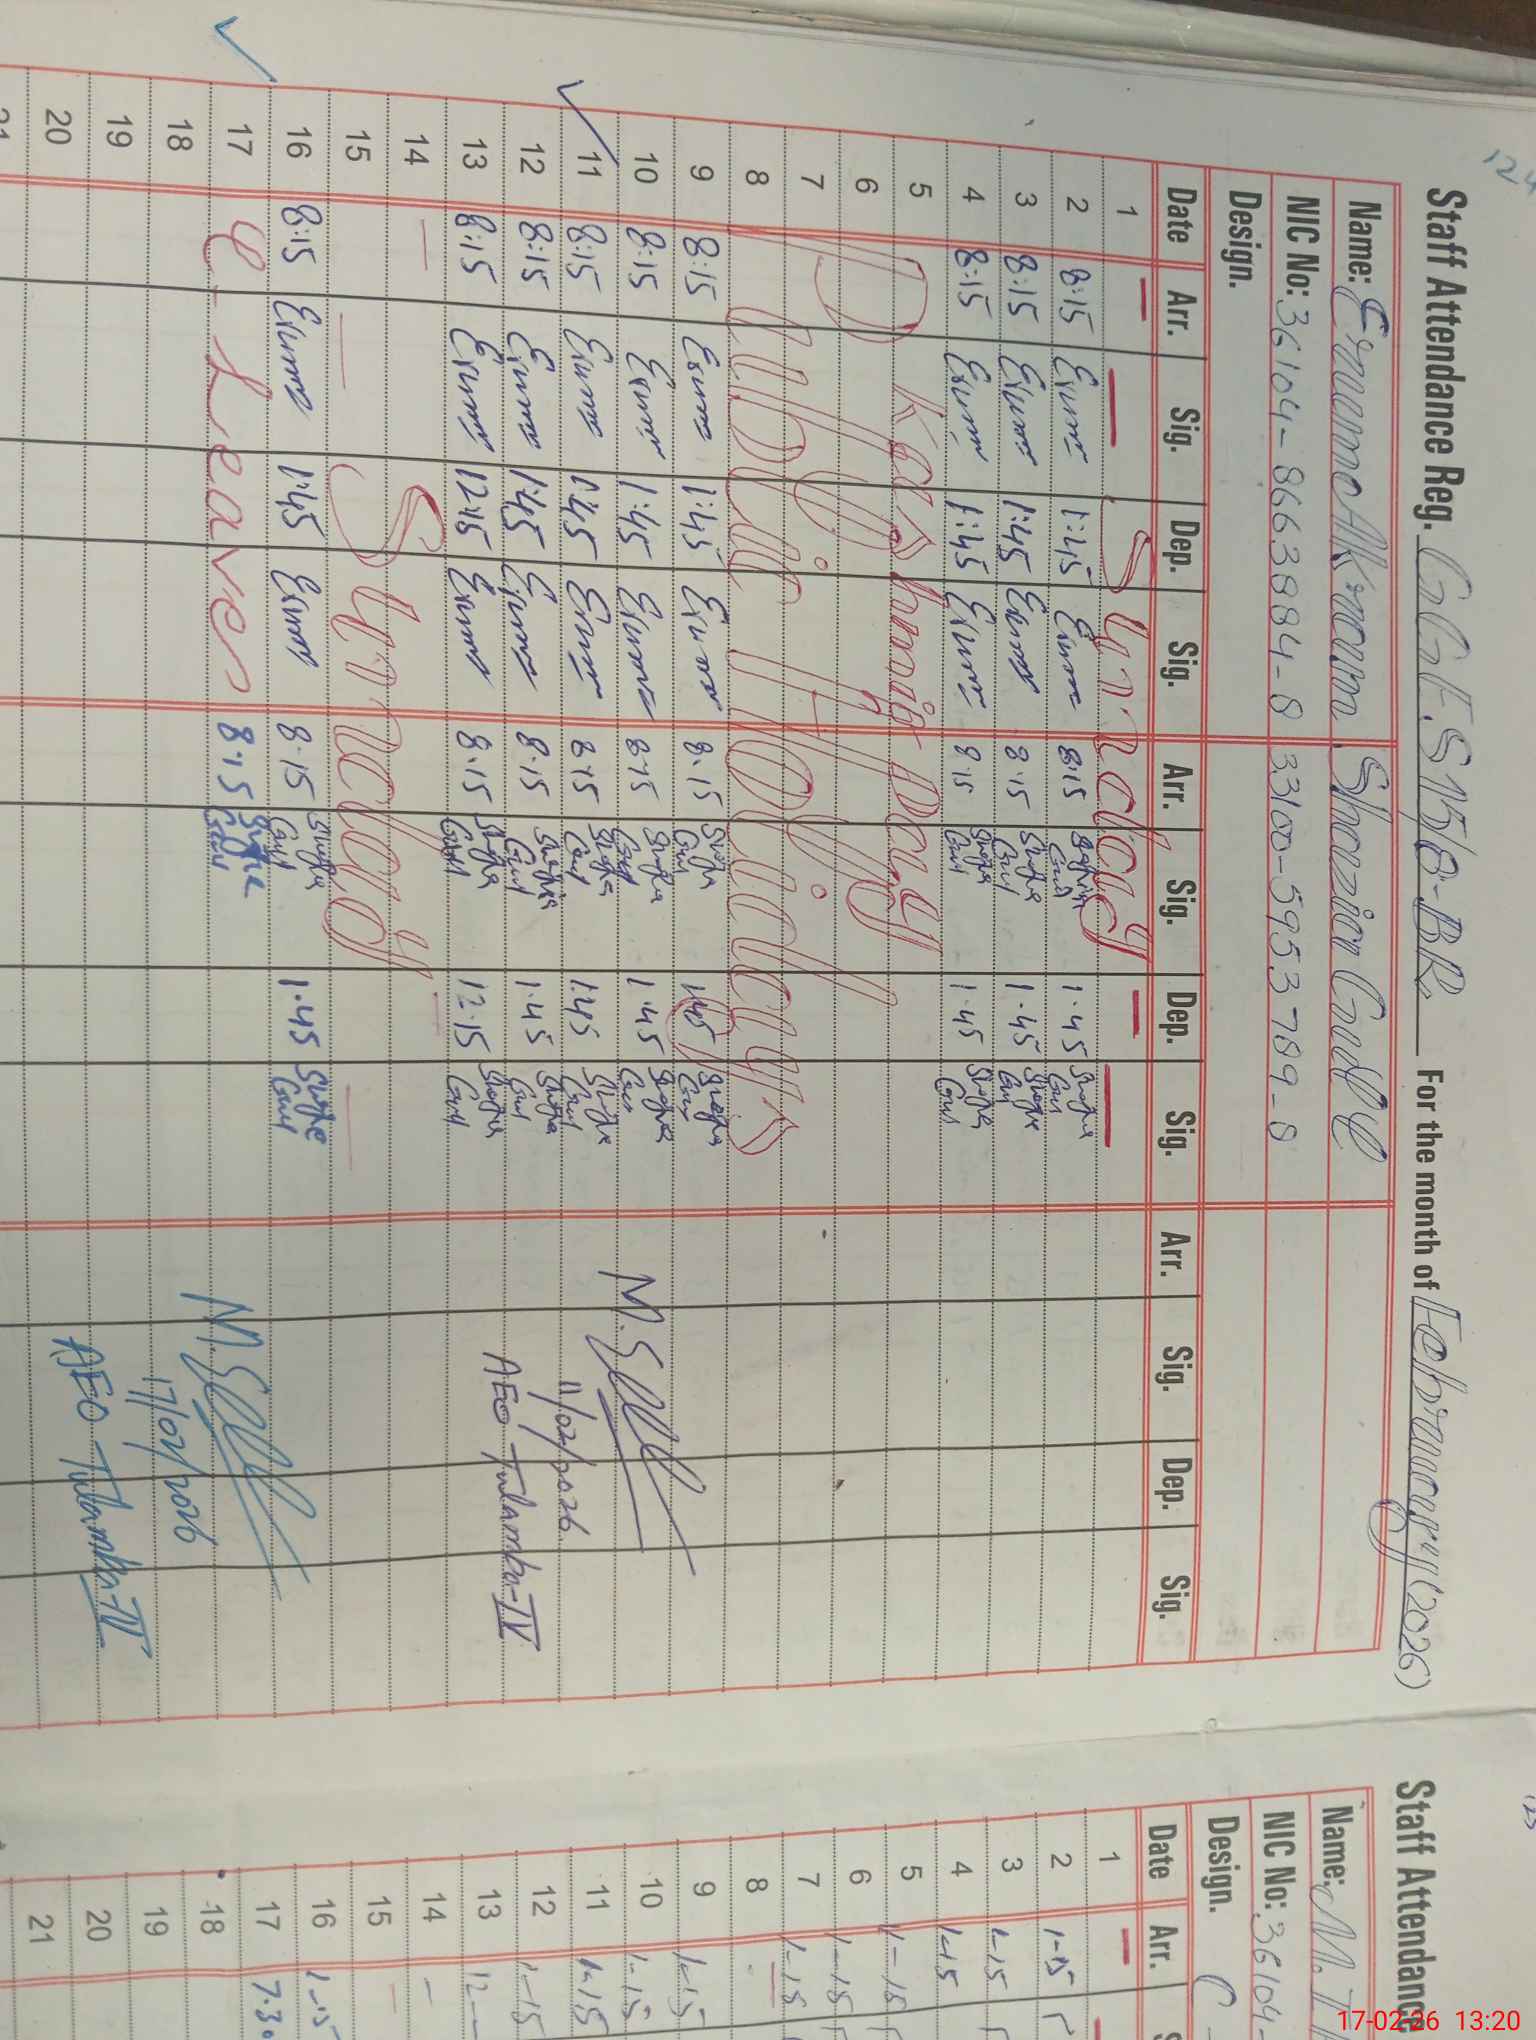 124
Staff Attendance Reg. G.G.E.S 115/8-BR For the month of February (2026)
Name: Erum Akram Shazia Gull
NIC No: 36104-8663884-8 33100-5953789-8
Design.
Date Arr. Sig. Dep. Sig. Arr. Sig. Dep. Sig. Arr. Sig. Dep. Sig.
1 — — Sunday — —
2 8:15 Erum 1:45 Erum 8:15 Shazia Gul 1.45 Shazia Gul
3 8:15 Erum 1:45 Erum 8.15 Shazia Gul 1.45 Shazia Gul
4 8:15 Erum 1:45 Erum 8.15 Shazia Gul 1.45 Shazia Gul
5 Kashmir Day
6
7
8 Public Holidays
9 8:15 Erum 1:45 Erum 8.15 Shazia Gul 1.45 Shazia Gul
10 8:15 Erum 1:45 Erum 8.15 Shazia Gul 1.45 Shazia Gul
11 8:15 Erum 1:45 Erum 8.15 Shazia Gul 1.45 Shazia Gul
11/02/2026
12 8:15 Erum 1:45 Erum 8.15 Shazia Gul 1.45 Shazia Gul
AEO Tulamba-IV
13 8:15 Erum 12:15 Erum 8.15 Shazia Gul 12.15 Shazia Gul
14 —
15 — Sunday —
16 8:15 Erum 1:45 Erum 8.15 Shazia Gul 1.45 Shazia Gul
17 Leave 8.15 Shazia Gul
18
17/02/2026
19
AEO Tulamba-IV
20
21
Staff Attendance
Name: M.
NIC No: 36104-
Design.
Date Arr.
1 —
2 1-15
3 1-15
4 1-15
5 1-15
6 1-15
7 1-15
8 —
9 1-15
10 1-15
11 1-15
12 1-15
13 12
14 —
15 —
16 1-15
17 7.30
18
19
20
21
17-02-26 13:20